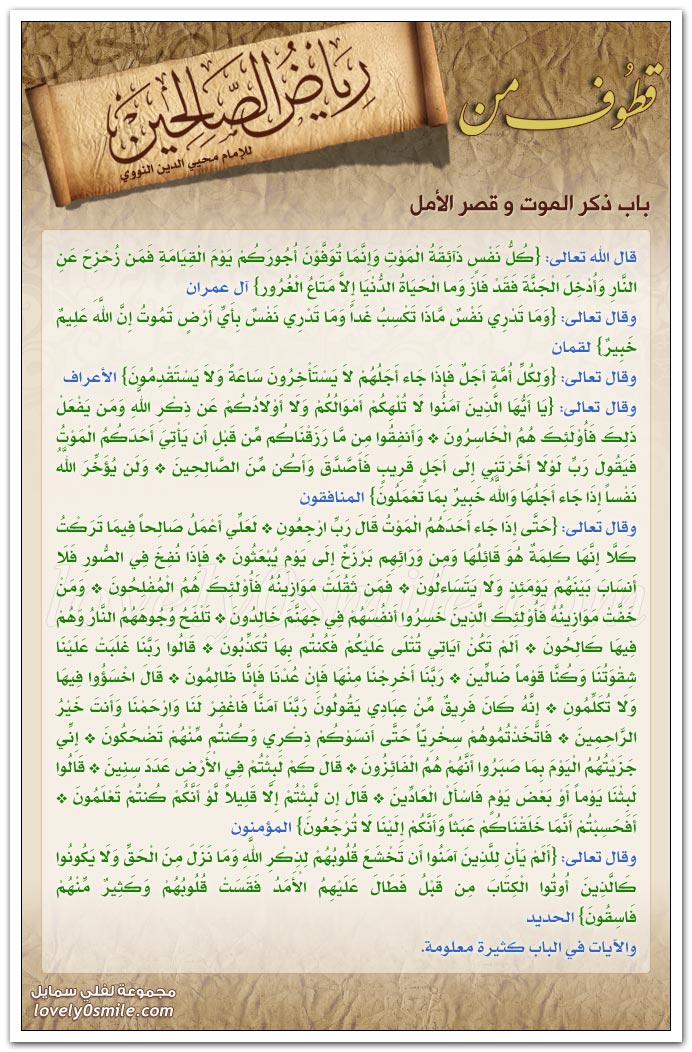 قطوف من
رياض الصالحين
للإمام محيي الدين النووي
باب ذكر الموت و قصر الأمل
قال الله تعالى: {كُلُّ نَفْسٍ ذَآئِقَةُ الْمَوْتِ وَإِنَّمَا تُوَفَّوْنَ أُجُورَكُمْ يَوْمَ الْقِيَامَةِ فَمَن زُحْزِحَ عَنِ
النَّارِ وَأُدْخِلَ الْجَنَّةَ فَقَدْ فَازَ وَما الْحَيَاةُ الدُّنْيَا إِلاَّ مَتَاعُ الْغُرُورِ} آل عمران
وقال تعالى: {وَمَا تَدْرِي نَفْسٌ مَّاذَا تَكْسِبُ غَداً وَمَا تَدْرِي نَفْسٌ بِأَيِّ أَرْضٍ تَمُوتُ إِنَّ اللَّهَ عَلِيمٌ
خَبِيرٌ} لقمان
وقال تعالى: {وَلِكُلِّ أُمَّةٍ أَجَلٌ فَإِذَا جَاء أَجَلُهُمْ لاَ يَسْتَأْخِرُونَ سَاعَةً وَلاَ يَسْتَقْدِمُونَ} الأعراف
وقال تعالى: {يَا أَيُّهَا الَّذِينَ آمَنُوا لَا تُلْهِكُمْ أَمْوَالُكُمْ وَلَا أَوْلَادُكُمْ عَن ذِكْرِ اللَّهِ وَمَن يَفْعَلْ
ذَلِكَ فَأُوْلَئِكَ هُمُ الْخَاسِرُونَ ❖ وَأَنفِقُوا مِن مَّا رَزَقْنَاكُم مِّن قَبْلِ أَن يَأْتِيَ أَحَدَكُمُ الْمَوْتُ
فَيَقُولَ رَبِّ لَوْلَا أَخَّرْتَنِي إِلَى أَجَلٍ قَرِيبٍ فَأَصَّدَّقَ وَأَكُن مِّنَ الصَّالِحِينَ ❖ وَلَن يُؤَخِّرَ اللَّهُ
نَفْساً إِذَا جَاء أَجَلُهَا وَاللَّهُ خَبِيرٌ بِمَا تَعْمَلُونَ} المنافقون
وقال تعالى: {حَتَّى إِذَا جَاء أَحَدَهُمُ الْمَوْتُ قَالَ رَبِّ ارْجِعُونِ ❖ لَعَلِّي أَعْمَلُ صَالِحاً فِيمَا تَرَكْتُ
كَلَّا إِنَّهَا كَلِمَةٌ هُوَ قَائِلُهَا وَمِن وَرَائِهِم بَرْزَخٌ إِلَى يَوْمِ يُبْعَثُونَ ❖ فَإِذَا نُفِخَ فِي الصُّورِ فَلَا
أَنسَابَ بَيْنَهُمْ يَوْمَئِذٍ وَلَا يَتَسَاءلُونَ ❖ فَمَن ثَقُلَتْ مَوَازِينُهُ فَأُوْلَئِكَ هُمُ الْمُفْلِحُونَ ❖ وَمَنْ
خَفَّتْ مَوَازِينُهُ فَأُوْلَئِكَ الَّذِينَ خَسِرُوا أَنفُسَهُمْ فِي جَهَنَّمَ خَالِدُونَ ❖ تَلْفَحُ وُجُوهَهُمُ النَّارُ وَهُمْ
فِيهَا كَالِحُونَ ❖ أَلَمْ تَكُنْ آيَاتِي تُتْلَى عَلَيْكُمْ فَكُنتُم بِهَا تُكَذِّبُونَ ❖ قَالُوا رَبَّنَا غَلَبَتْ عَلَيْنَا
شِقْوَتُنَا وَكُنَّا قَوْماً ضَالِّينَ ❖ رَبَّنَا أَخْرِجْنَا مِنْهَا فَإِنْ عُدْنَا فَإِنَّا ظَالِمُونَ ❖ قَالَ اخْسَؤُوا فِيهَا
وَلَا تُكَلِّمُونِ ❖ إِنَّهُ كَانَ فَرِيقٌ مِّنْ عِبَادِي يَقُولُونَ رَبَّنَا آمَنَّا فَاغْفِرْ لَنَا وَارْحَمْنَا وَأَنتَ خَيْرُ
الرَّاحِمِينَ ❖ فَاتَّخَذْتُمُوهُمْ سِخْرِيّاً حَتَّى أَنسَوْكُمْ ذِكْرِي وَكُنتُم مِّنْهُمْ تَضْحَكُونَ ❖ إِنِّي
جَزَيْتُهُمُ الْيَوْمَ بِمَا صَبَرُوا أَنَّهُمْ هُمُ الْفَائِزُونَ ❖ قَالَ كَمْ لَبِثْتُمْ فِي الْأَرْضِ عَدَدَ سِنِينَ ❖ قَالُوا
لَبِثْنَا يَوْماً أَوْ بَعْضَ يَوْمٍ فَاسْأَلْ الْعَادِّينَ ❖ قَالَ إِن لَّبِثْتُمْ إِلَّا قَلِيلاً لَّوْ أَنَّكُمْ كُنتُمْ تَعْلَمُونَ ❖
أَفَحَسِبْتُمْ أَنَّمَا خَلَقْنَاكُمْ عَبَثاً وَأَنَّكُمْ إِلَيْنَا لَا تُرْجَعُونَ} المؤمنون
وقال تعالى: {أَلَمْ يَأْنِ لِلَّذِينَ آمَنُوا أَن تَخْشَعَ قُلُوبُهُمْ لِذِكْرِ اللَّهِ وَمَا نَزَلَ مِنَ الْحَقِّ وَلَا يَكُونُوا
كَالَّذِينَ أُوتُوا الْكِتَابَ مِن قَبْلُ فَطَالَ عَلَيْهِمُ الْأَمَدُ فَقَسَتْ قُلُوبُهُمْ وَكَثِيرٌ مِّنْهُمْ
فَاسِقُونَ} الحديد
والآيات في الباب كثيرة معلومة.
مجموعة لفلي سمايل
lovely0smile.com